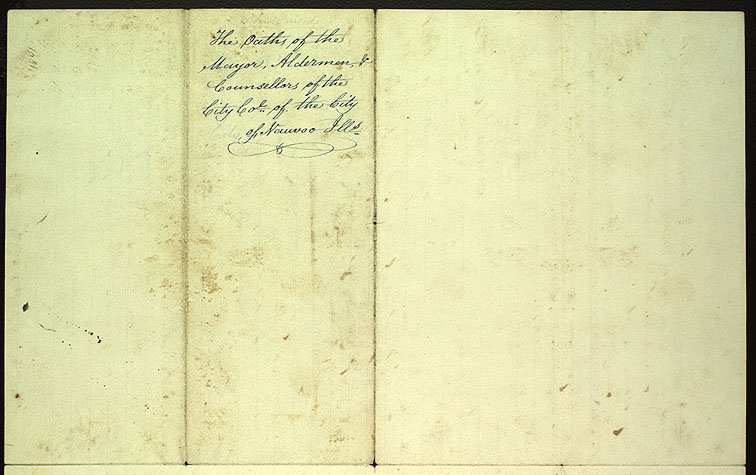 The Oaths of the
Mayor, Aldermen, &
Counsellors of the
City Col. of the City
of Nauvoo Ills